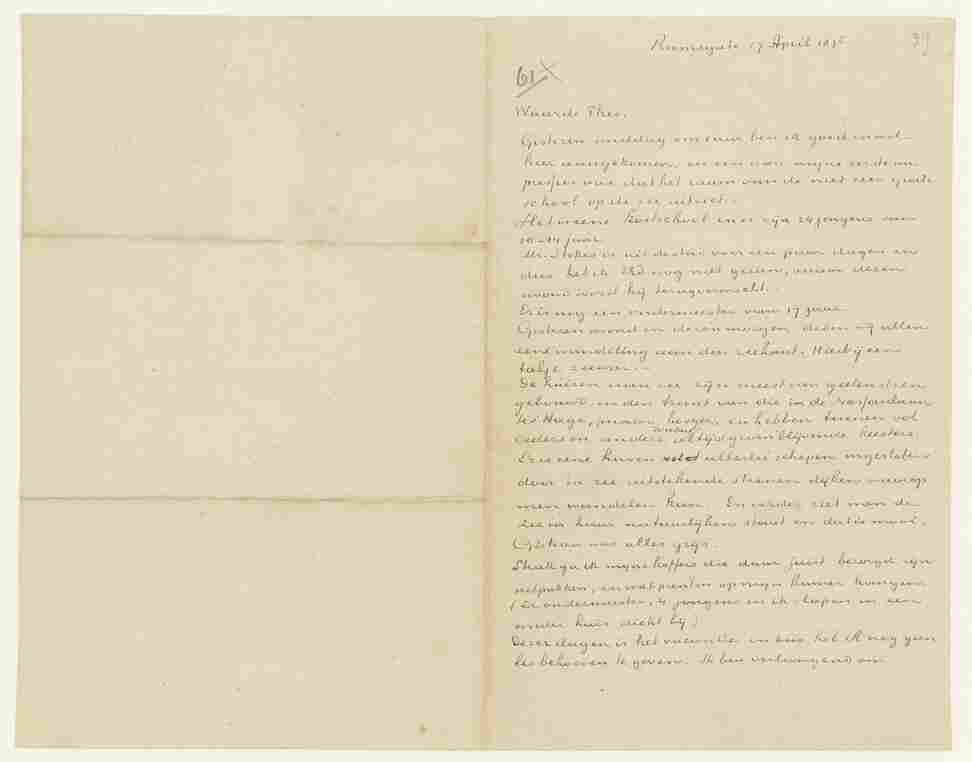 Ramsgate 17 April 1876
39
61 X
Waarde Theo,
Gisteren middag om 1 uur ben ik goed en wel
hier aangekomen, en een van mijne eerste im
pressies was dat het raam van de niet zeer groote
school op de zee uitziet.
Het is eene kostschool en er zijn 24 jongens van
10–14 jaar.
Mr. Stokes is uit de stad voor een paar dagen en
dus heb ik hem nog niet gezien, maar dezen
avond wordt hij terugverwacht.
Er is nog een ondermeester van 17 jaar.
Gisteren avond en dezen morgen deden wij allen
eene wandeling aan den zeekant. Hierbij een
takje zeewier.
De huizen aan zee zijn meest van gelen steen
gebouwd in den trant van die in de Nassaulaan
te Hage, maar hooger, en hebben tuinen vol
ceders en andere donkere altijd groen blijvende heesters.
Er is eene haven vol allerlei schepen ingesloten
door in zee uitstekende steenen dijken waarop
men wandelen kan. En verder ziet men de
zee in haar natuurlijken staat en dat is mooi.
Gisteren was alles grijs.
Straks ga ik mijne koffers die daar juist bezorgd zijn
uitpakken, en wat prenten op mijn kamer hangen
(de ondermeester, 4 jongens en ik slapen in een
ander huis dicht bij)
Dezer dagen is het vacantie en dus heb ik nog geen
les behoeven te geven. Ik ben verlangend om